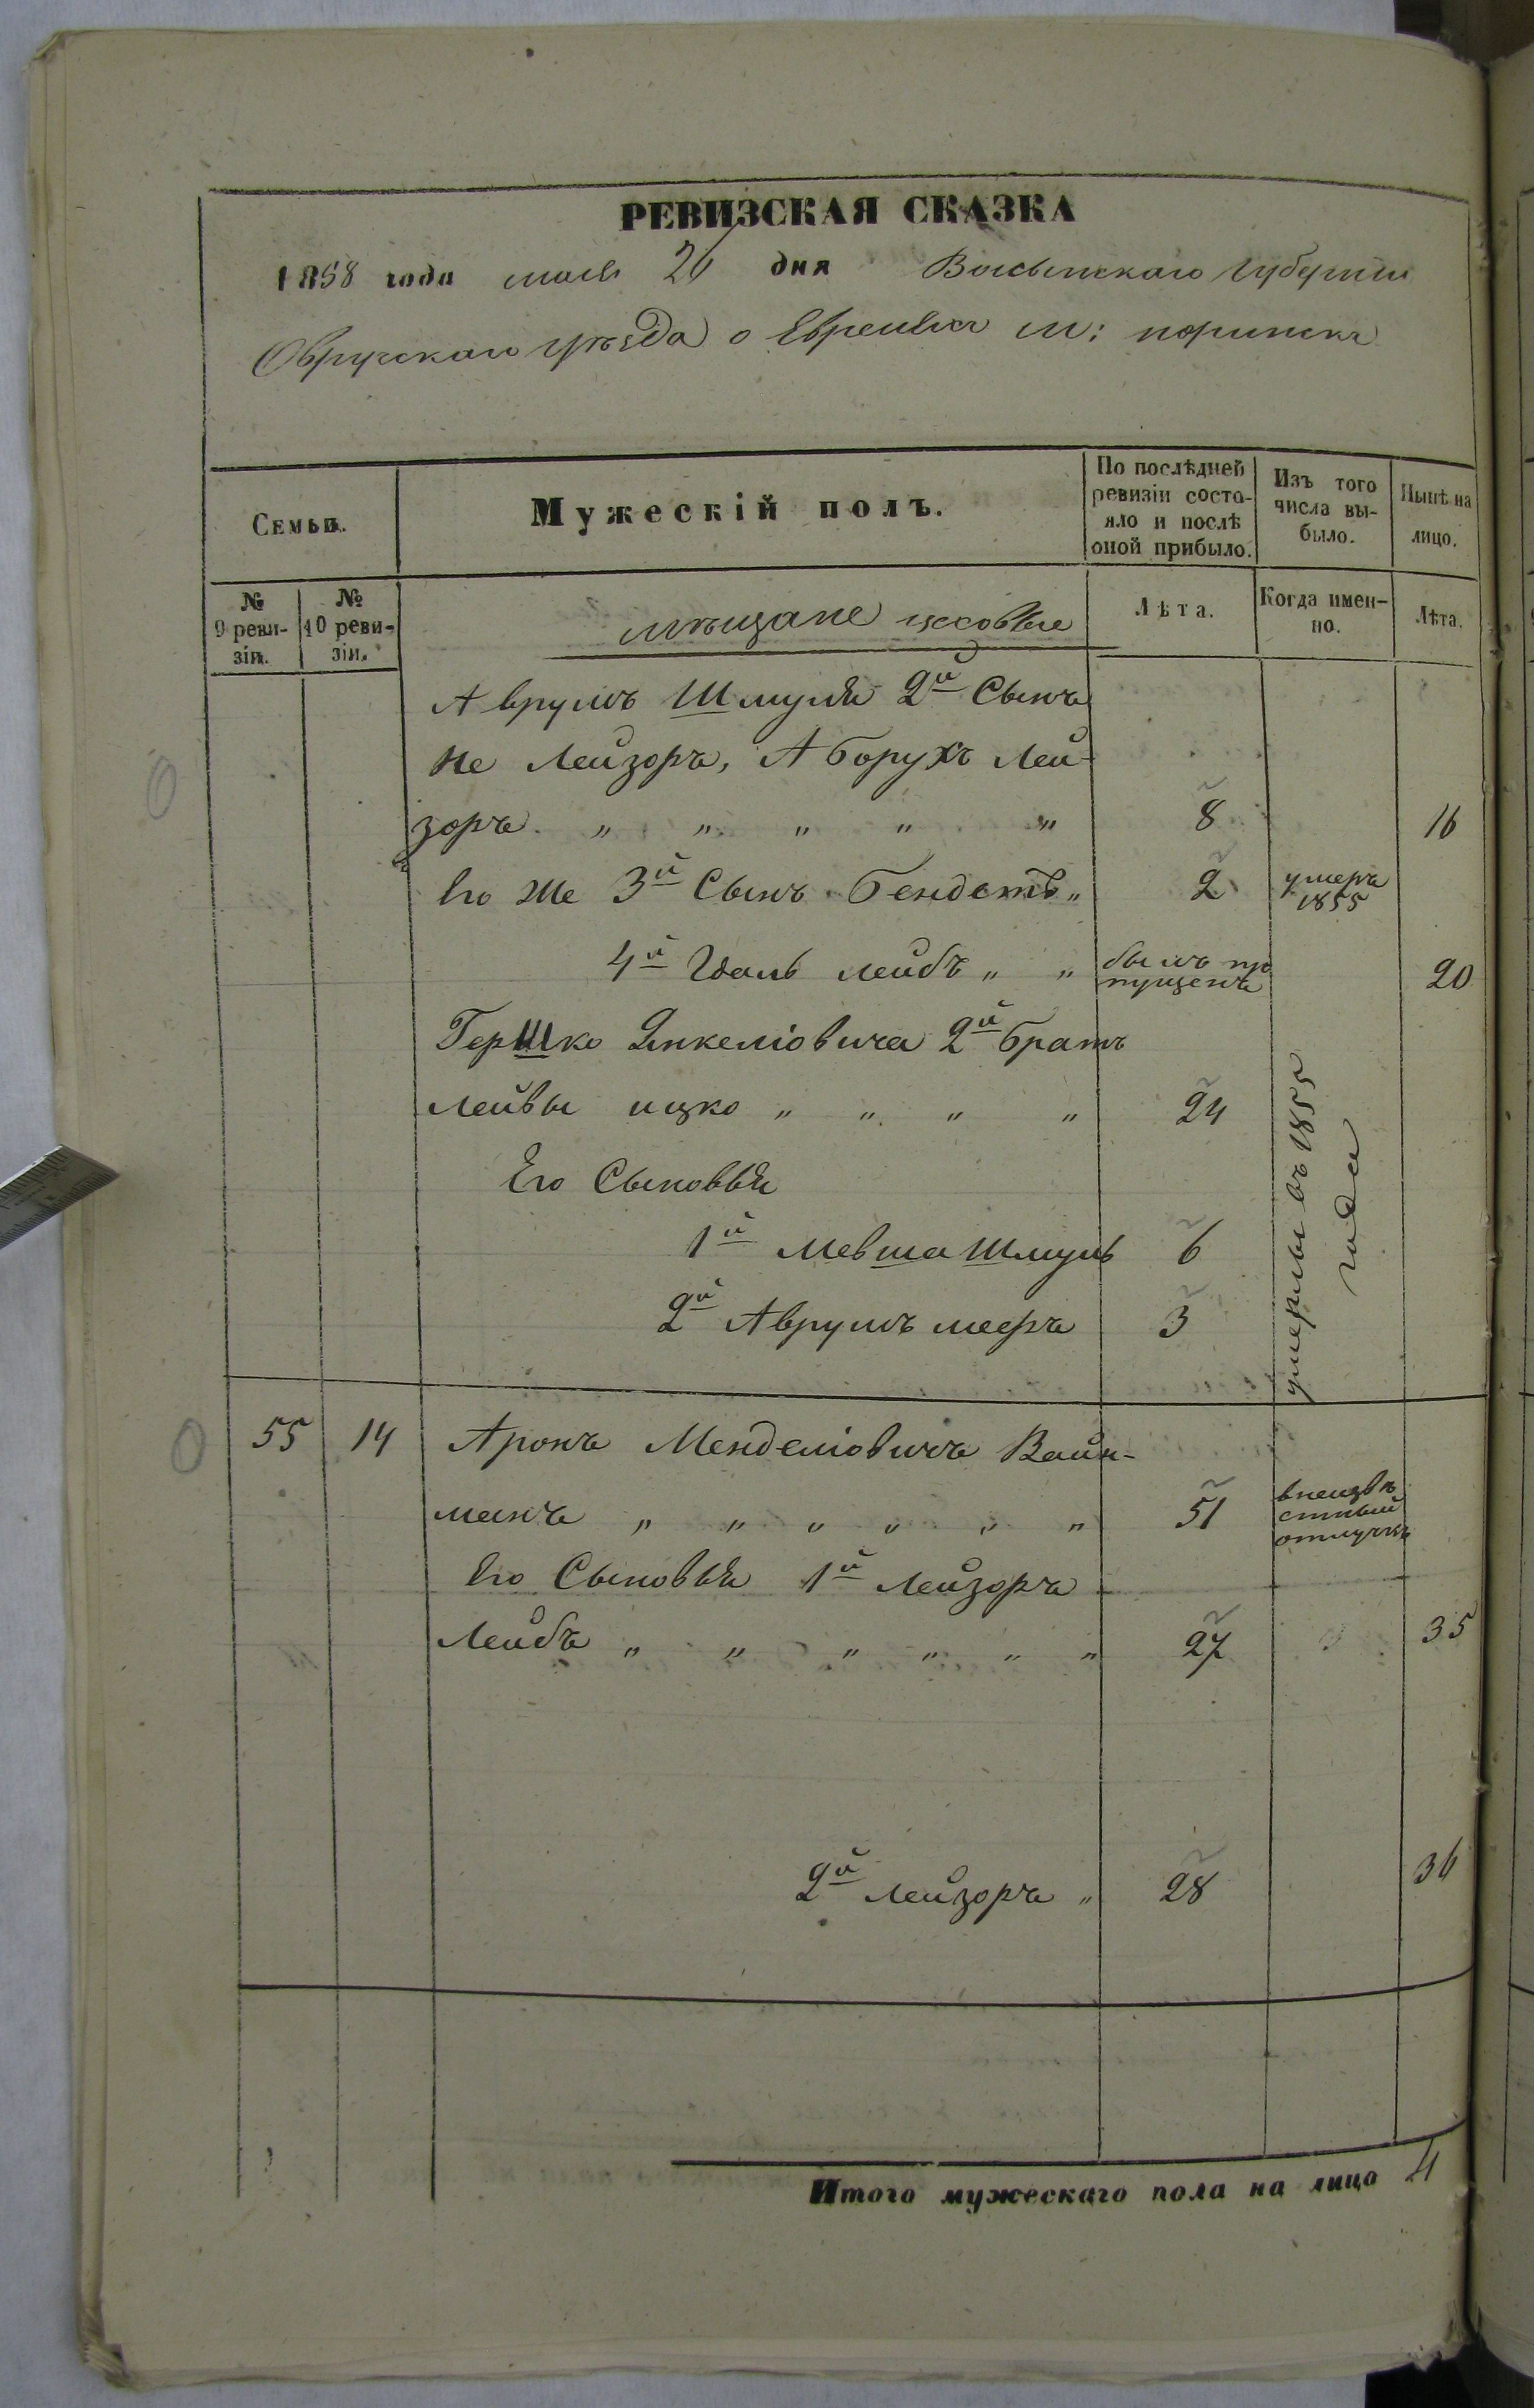 РЕВИЗСКАЯ СКАЗКА
1858 года маія 26 дня Волынской губерніи
Овручскаго уѣзда о Евреяхъ м: норинска
Семьи.
Мужескій полъ.
По послѣдней ревизіи состо-яло и послѣ оной прибыло.
Изъ того числа вы-было.
Нынѣ на лицо.
№ 9 реви-зіи.
№ 10 реви-зіи.
мѣщане цеховые
Лѣта.
Когда имен-но.
Лѣта.
Аврумъ Шмуля 2й Сынъ
не Лейзоръ, А борухъ Лей-
зоръ " " " " " 8 16
Его же 3й Сынъ Бендетъ " 2 умеръ 1855
4й Идаль лейбъ " " былъ про пущенъ 20
Гершко Янкеліовича 2й братъ
Лейвы ицко " " " " 24
Его Сыновья
1й Мевша Шмуль 6
2й Аврумъ мееръ 3
умерлы въ 1855
года
55 14 Аронъ Менделіовичъ Вайн-
манъ " " " " " " 51 в неизвѣ стный отлучкѣ
Его Сыновья 1й Лейзоръ
Лейбъ " " " " " " 27 35
2й лейзоръ " 28 36
Итого мужескаго пола на лицо 4